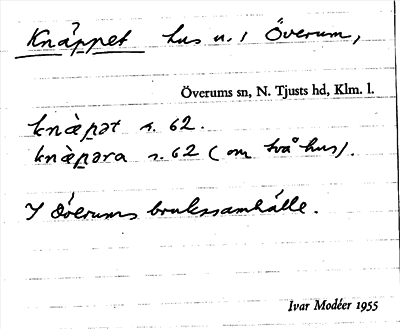 Knäppet hus u. i Överum,
Överums sn, N. Tjusts hd, Klm. l.
knæ̀pət s. 62.
knæ̀pəra s. 62 (om två hus).
I Överums brukssamhälle.
Ivar Modéer 1955